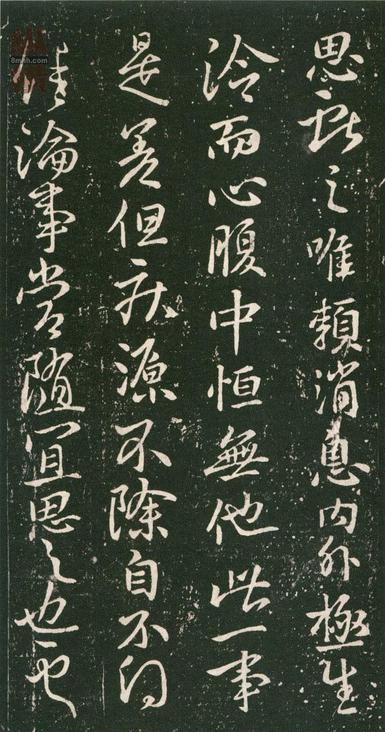 思獻之唯賴消息內外極生
冷而心腹中恒無他此一事
是差但疾源不除自不得
佳論事當隨宜思之也